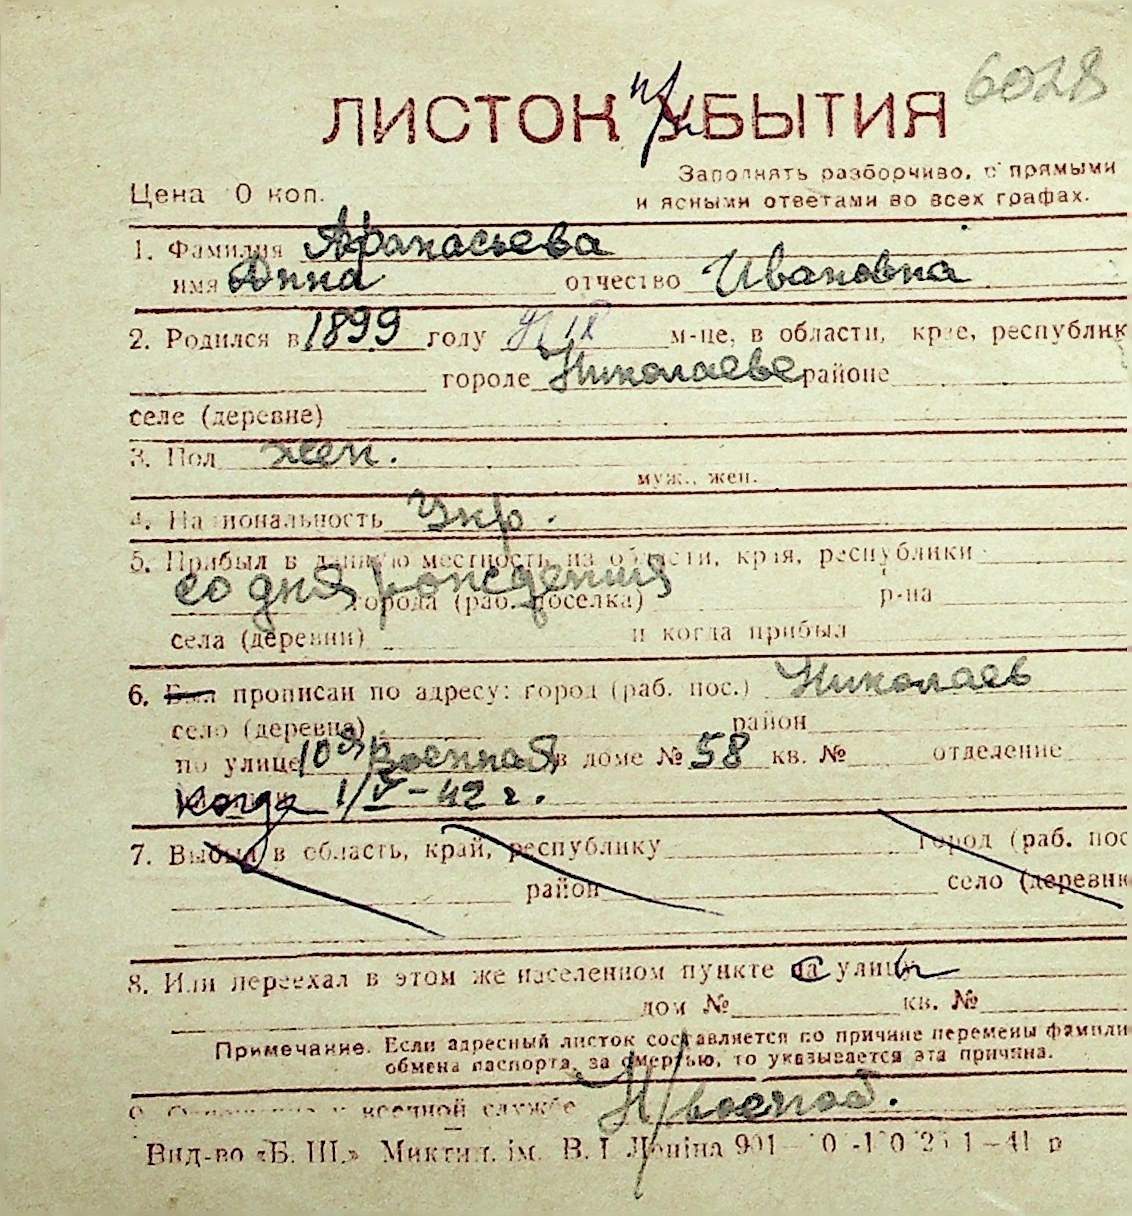 6028
ЛИСТОК УБЫТИЯ
Заполнять разборчиво, с прямыми
Цена 0 коп.
и ясными ответами во всех графах.
1. Фамилия Афанасьева
имя Анна отчество Ивановна
2. Родился в 1899 году м-це, в области, крае, республик
городе Николаеве районе
селе (деревне)
3. Пол жен.
муж., жен.
4. Национальность Укр.
5. Прибыл в данную местность из области, края, республики
со дня рождения
города (раб. поселка) р-на
села (деревни) и когда прибыл
6. Был прописан по адресу: город (раб. пос.) Николаев
село (деревна) район
по улице 10я Военная в доме № 58 кв. № отделение
когда 1/V-42 г.
7. Выбыл в область, край, республику город (раб. пос
район село (деревню
8. Или переехал в этом же населенном пункте на улицу
дом № кв. №
Примечание. Если адресный листок составляется по причине перемены фамили
обмена паспорта, за смертью, то указывается эта причина.
9. Отношение к военной службе Н/военоб.
Вид-во «Б. Ш.» Миктип. ім. В. І. Леніна 901